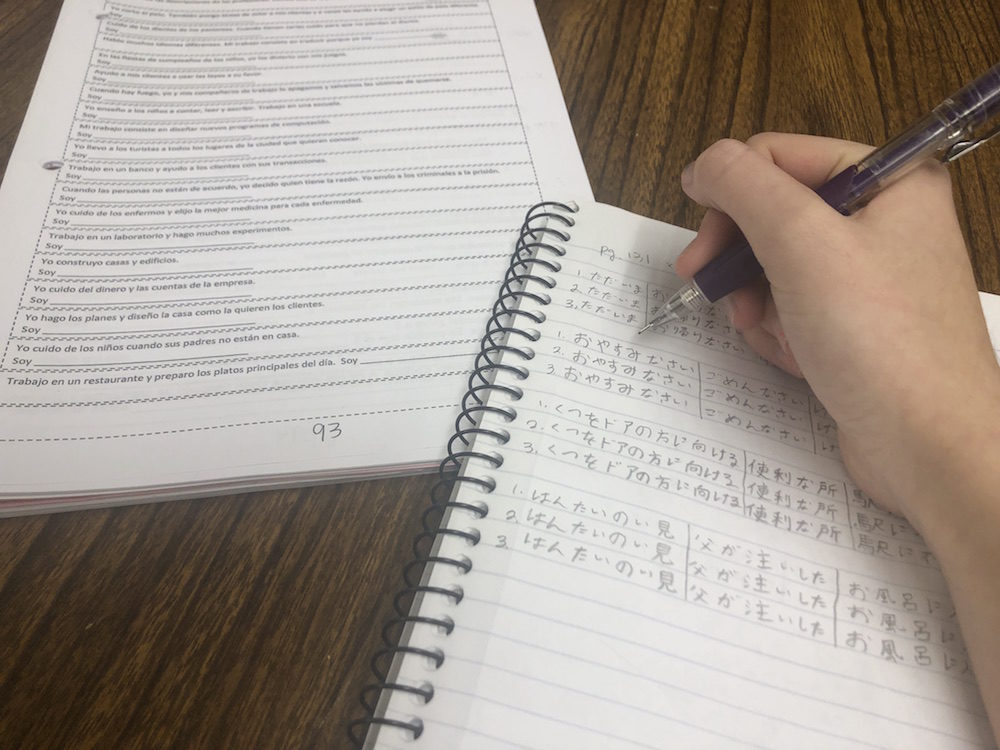 Soy
Cuido de los dientes de los pacientes.
Soy
Hablo muchos idiomas diferentes. Mi trabajo consiste en traducir
En las fiestas de cumpleaños de los niños, yo los divierto con mis juegos.
Soy
Ayudo a mis clientes a usar las leyes a su favor.
Soy
Cuando hay fuego, yo y mis compañeros de trabajo lo apagamos y salvamos las víctimas de quemarse.
Soy
Yo enseño a los niños a contar, leer y escribir. Trabajo en una escuela.
Soy
Mi trabajo consiste en diseñar nuevos programas de computación.
Soy
Yo llevo a los turistas a todos los lugares de la ciudad que quieren conocer.
Soy
Trabajo en un banco y ayudo a los clientes con los transacciones.
Soy
Cuando las personas no están de acuerdo, yo decido quien tiene la razón. Yo envío a los criminales a la prisión.
Soy
Yo cuido de los enfermos y elijo la mejor medicina para cada enfermedad.
Soy
Trabajo en un laboratorio y hago muchos experimentos.
Soy
Yo construyo casas y edificios.
Soy
Yo cuido del dinero y las cuentas de la empresa.
Soy
Yo hago los planes y diseño la casa como la quieren los clientes.
Soy
Yo cuido de los niños cuando sus padres no están en casa.
Soy
Trabajo en un restaurante y preparo los platos principales del día. Soy
93
Pg. 131
1. ただいま
2. ただいま
3. ただいま
1. おやすみなさい ごめんなさい
2. おやすみなさい ごめんなさい
3. おやすみなさい ごめんなさい
1. くつをドアの方に向ける 便利な所
2. くつをドアの方に向ける 便利な所
3. くつをドアの方に向ける 便利な所
1. はんたいのい見 父が注いした お風呂に
2. はんたいのい見 父が注いした お風呂に
3. はんたいのい見 父が注いした お風呂に